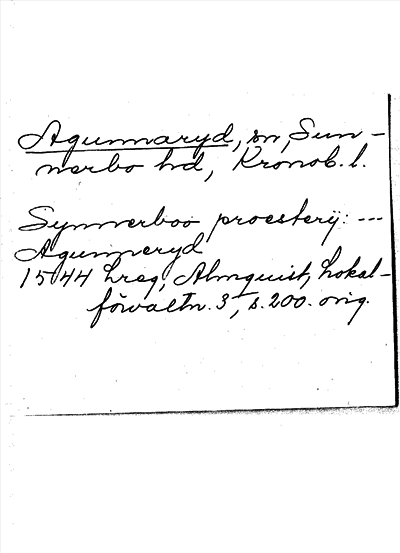 Agunnaryd, sn, Sun-
nerbo hd, Kronob. l.
Synnerboo proesterij: ---
Agunneryd
1544 Lreg, Almquist, Lokal-
förvaltn. 3, s. 200. orig.